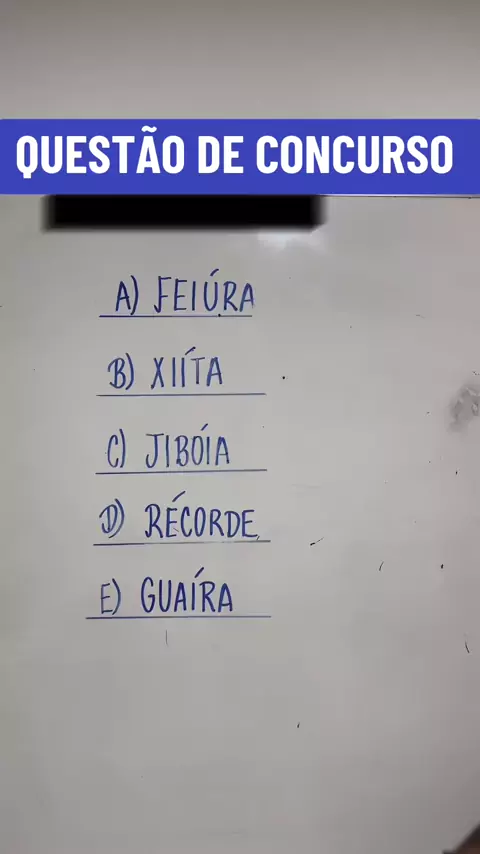 QUESTÃO DE CONCURSO
A) FEIÚRA
B) XIÍTA
C) JIBÓIA
D) RÉCORDE
E) GUAÍRA